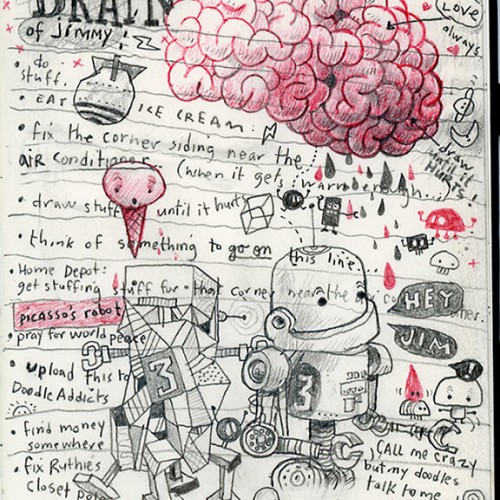 BRAIN
of Jimmy!
LOVE
always.
• do
stuff.
• EAT ICE CREAM.
• fix the corner siding near the
air conditioner... (when it gets warm enough...)
draw
until it
HURTS!
• draw stuff until it hurts
• think of something to go on
this line...
• Home Depot:
get stuffing stuff for that corner near the
picasso's robot
• pray for world peace
HEY
JIM
• upload this to
Doodle Addicts
• find money
somewhere
• fix Ruthies
closet
CALL me crazy
but my doodles
talk to me
3
3